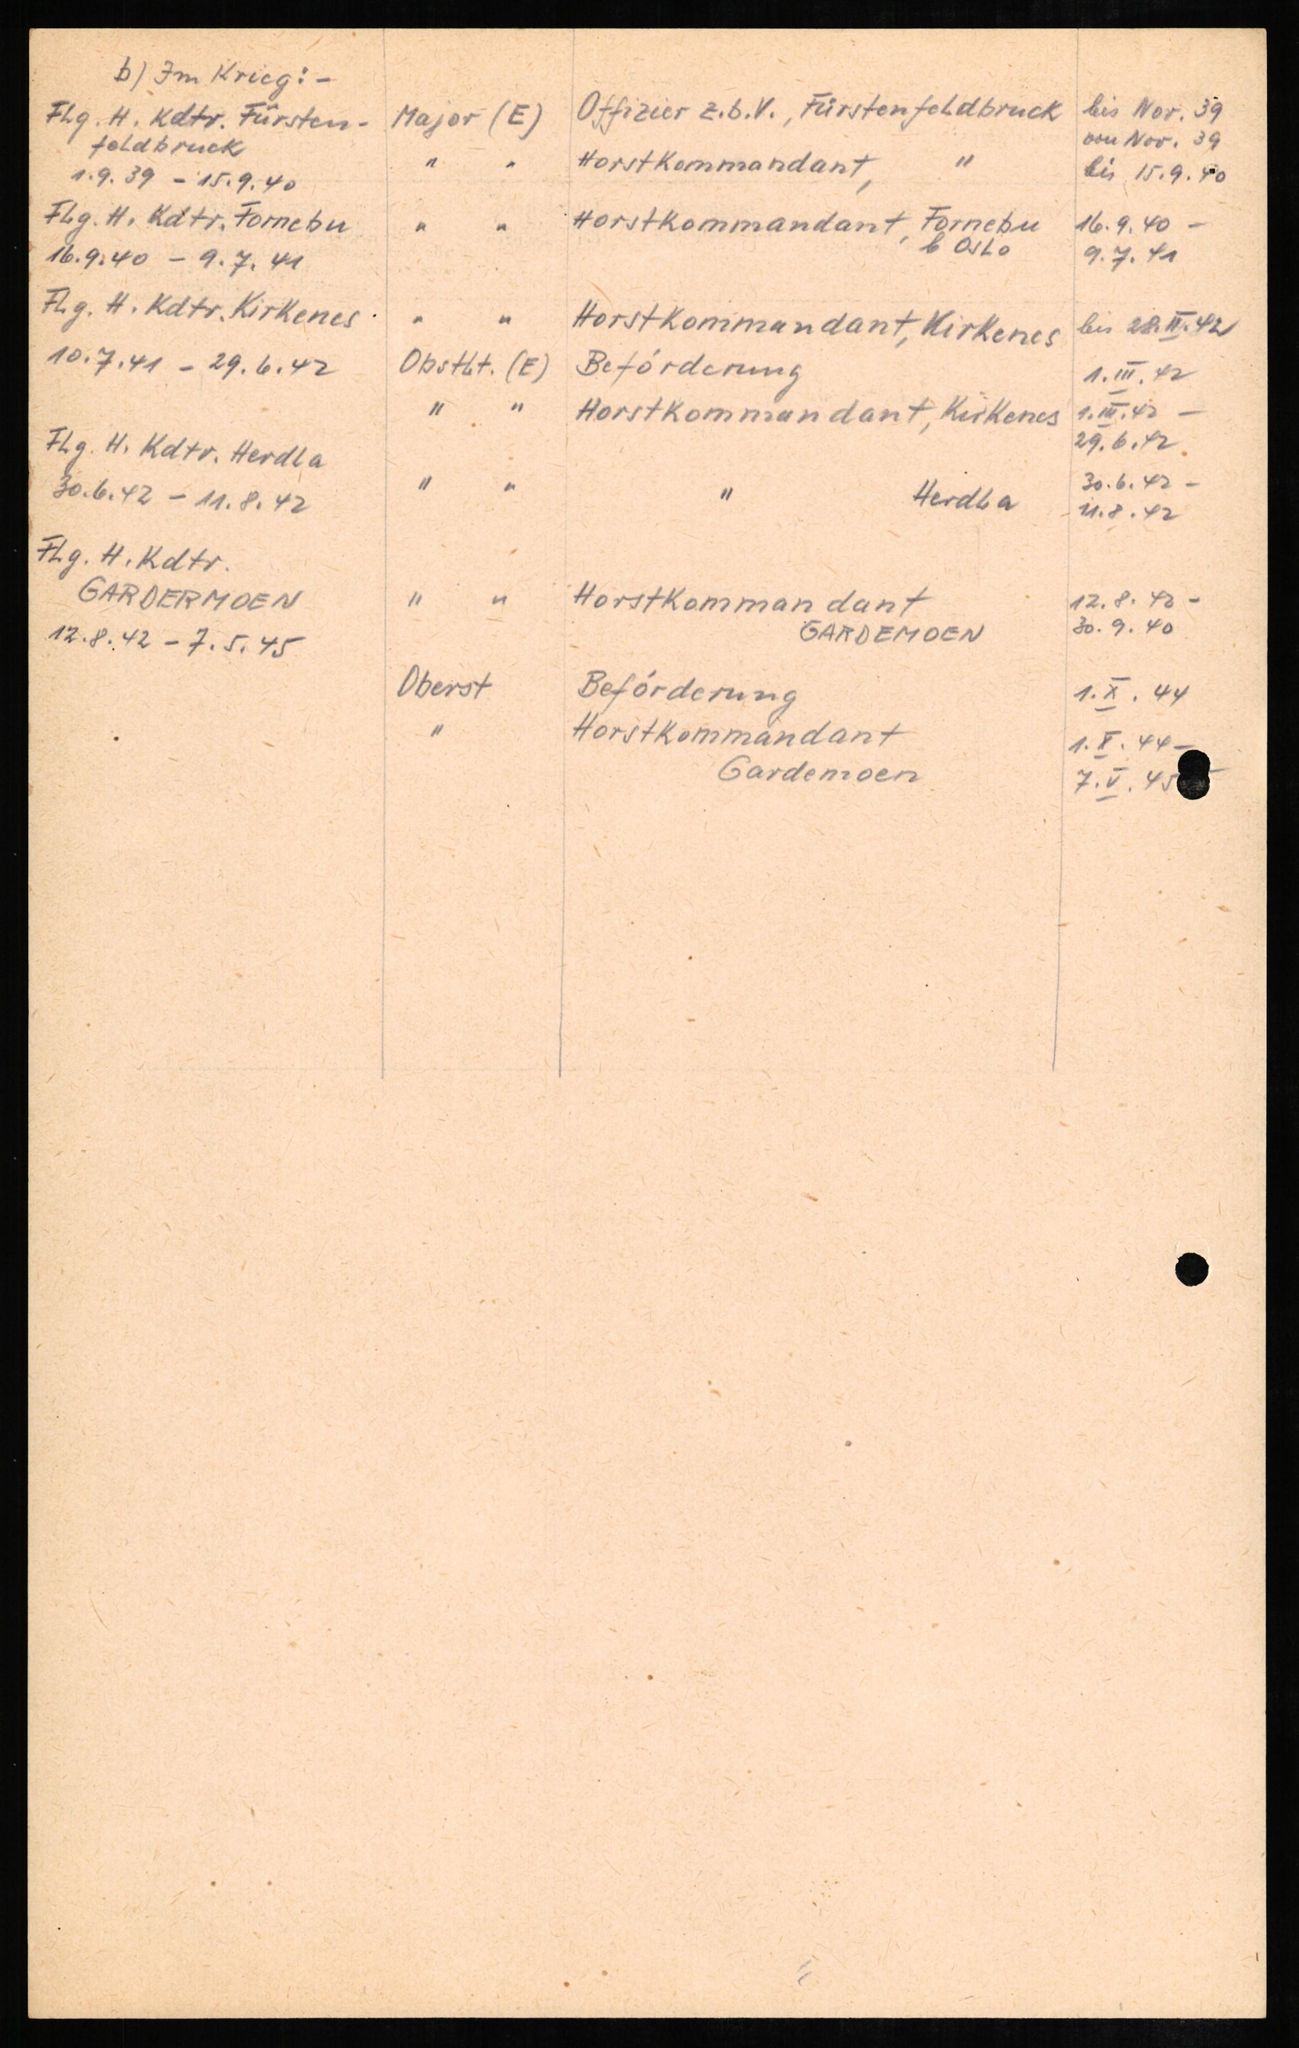 b) Im Krieg:-
Flg. H. Kdtr. Fürsten- Major (E) Offizier z.b.V., Fürstenfeldbruck bis Nov. 39
feldbruck " " Horstkommandant, " von Nov. 39
1.9.39 - 15.9.40 bis 15.9.40
Flg. H. Kdtr. Fornebu " " Horstkommandant, Fornebu 16.9.40 -
16.9.40 - 9.7.41 b Oslo 9.7.41
Flg. H. Kdtr. Kirkenes " " Horstkommandant, Kirkenes bis 28.II.42
10.7.41 - 29.6.42 Obstlt. (E) Beförderung 1.III.42
" " Horstkommandant, Kirkenes 1.III.42 -
29.6.42
Flg. H. Kdtr. Herdla
30.6.42 - 11.8.42 " " " Herdla 30.6.42 -
11.8.42
Flg. H. Kdtr.
GARDERMOEN " " Horstkommandant 12.8.42 -
12.8.42 - 7.5.45 GARDEMOEN 30.9.40
Oberst Beförderung 1.X.44
" Horstkommandant 1.X.44 -
Gardemoen 7.V.45